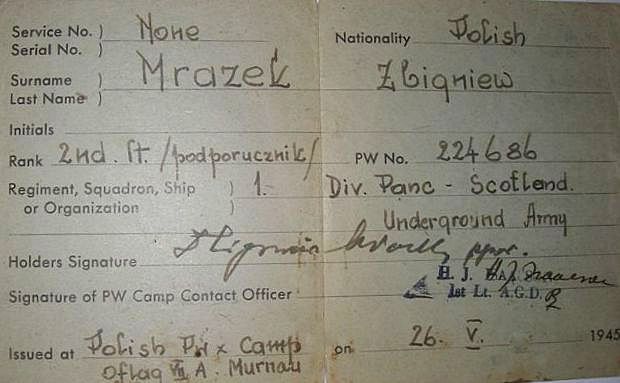 Service No. ) None Nationality Polish
Serial No. )
Surname ) Mrazek Zbigniew
Last Name )
Initials
Rank 2nd. lt. /podporucznik/ PW No. 224686
Regiment, Squadron, Ship ) 1. Div. Panc - Scotland.
or Organization ) Underground Army
Holders Signature ppor.
Signature of PW Camp Contact Officer H. J.
1st Lt. A.G.D.
Issued at Polish P.W x Camp on 26. V. 1945
Oflag VII A. Murnau